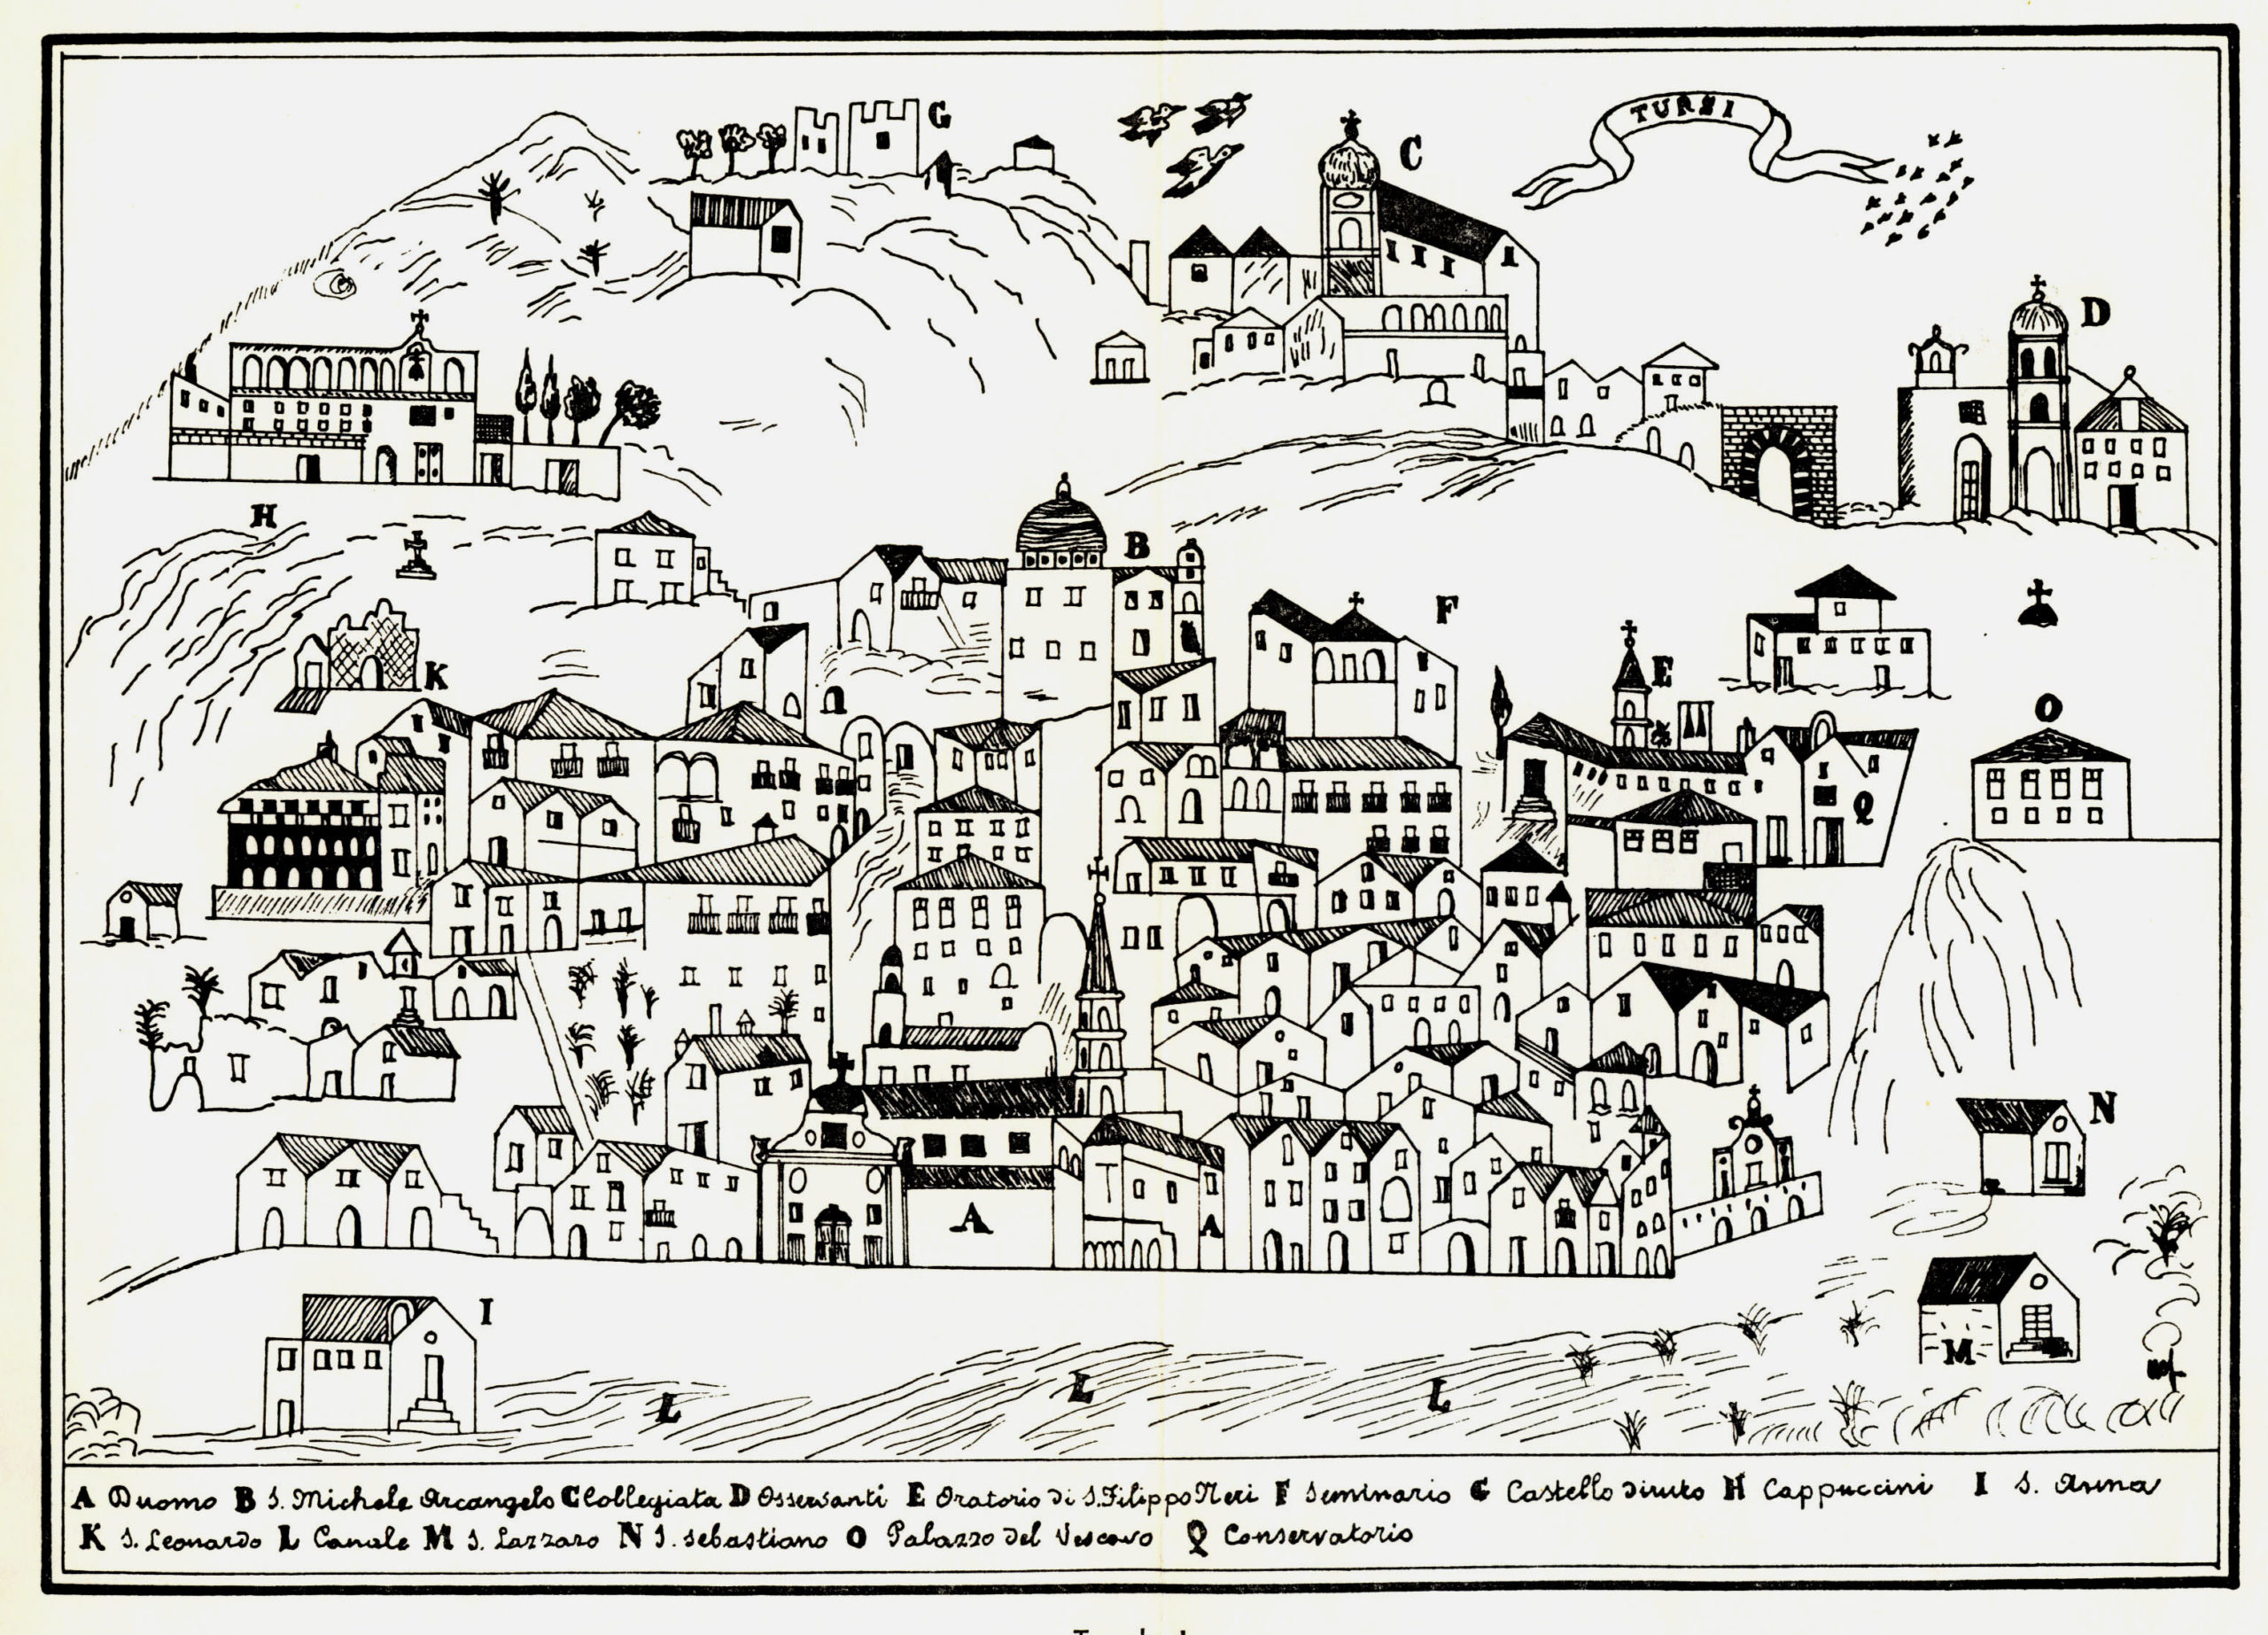 TURSI
G
C
D
H
B
F
K
E
O
Q
N
A
A
I
L
L
L
M
A Duomo B S. Michele Arcangelo C Collegiata D Osservanti E Oratorio di S. Filippo Neri F Seminario G Castello diruto H Cappuccini I S. Anna
K S. Leonardo L Canale M S. Lazzaro N S. Sebastiano O Palazzo del Vescovo Q Conservatorio